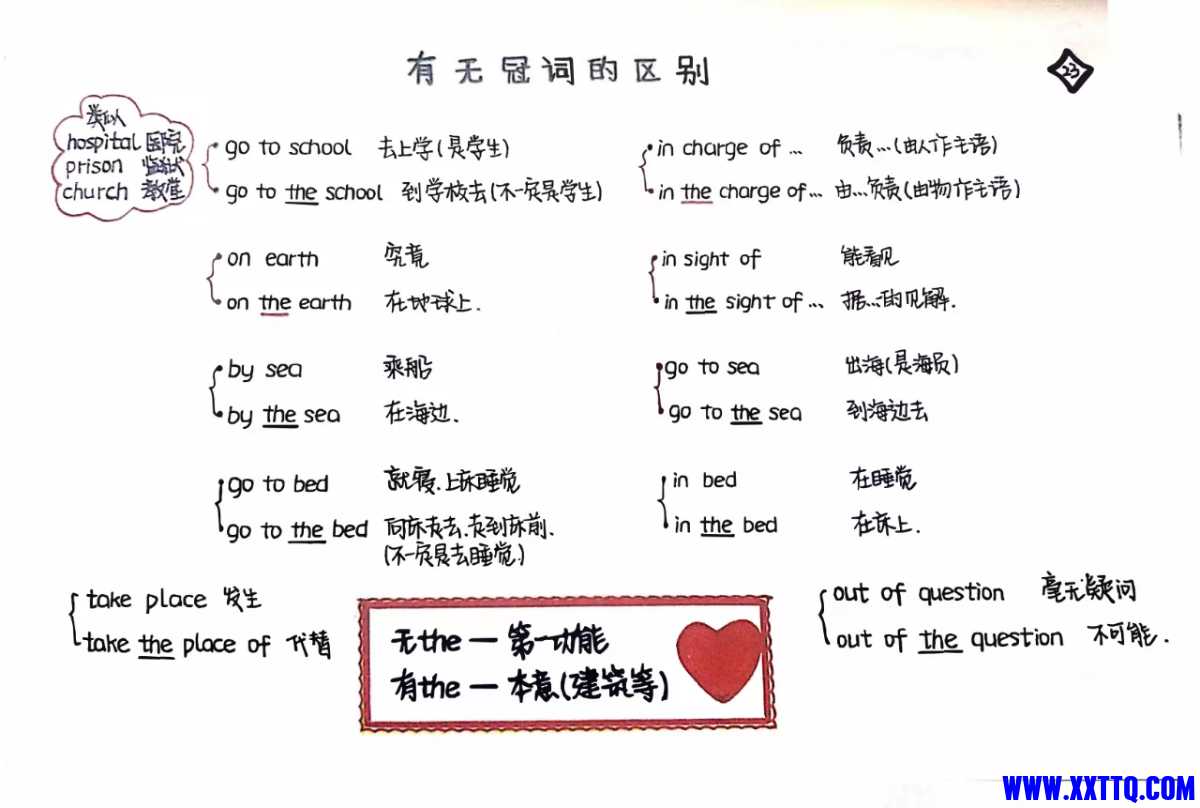 有无冠词的区别
23
类似
hospital 医院
prison 监狱
church 教堂
go to school 去上学(是学生)
go to the school 到学校去(不一定是学生)
in charge of ... 负责...(由人作主语)
in the charge of... 由...负责(由物作主语)
on earth 究竟
on the earth 在地球上.
in sight of 能看见
in the sight of ... 据...的见解.
by sea 乘船
by the sea 在海边.
go to sea 出海(是海员)
go to the sea 到海边去
go to bed 就寝.上床睡觉
go to the bed 向床走去.走到床前.
(不一定是去睡觉.)
in bed 在睡觉
in the bed 在床上.
take place 发生
take the place of 代替
无the — 第一功能
有the — 本意(建筑等)
out of question 毫无疑问
out of the question 不可能.
WWW.XXTTQ.COM